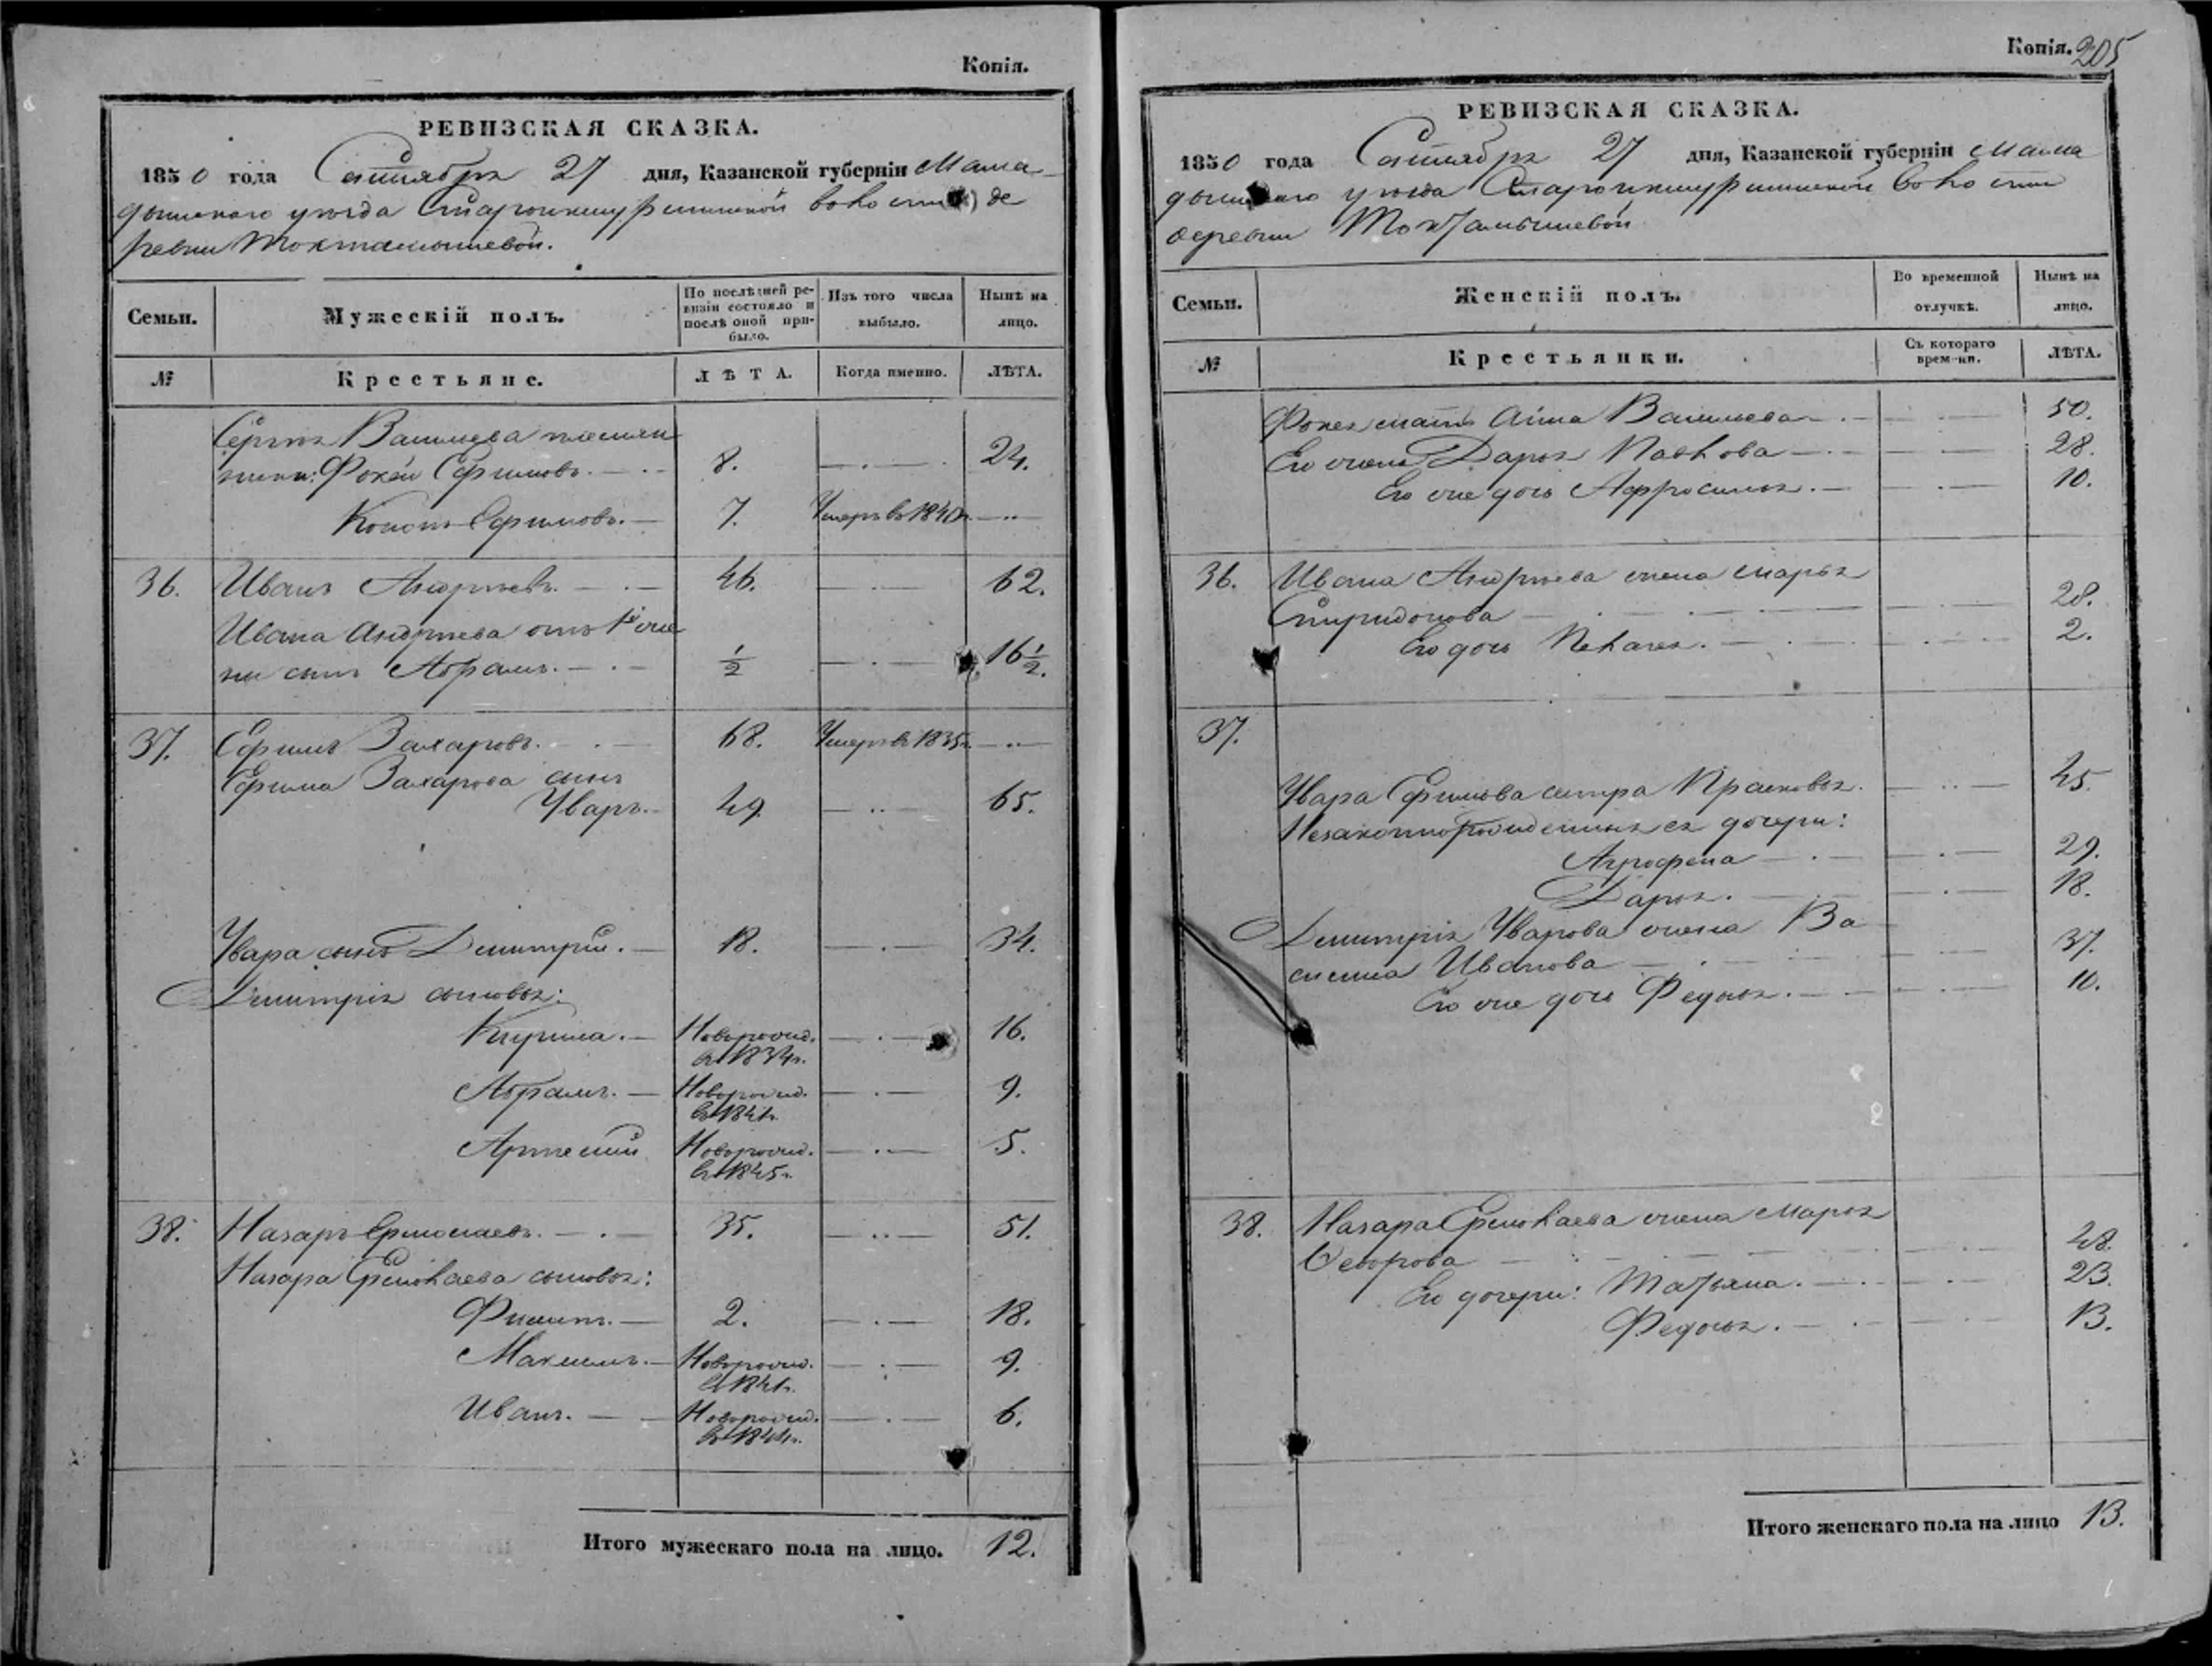 Копія.
РЕВИЗСКАЯ СКАЗКА.
1850 года Сентября 27 дня, Казанской губерніи Мама-
дышскаго уѣзда волости де
ревни Токтамышевой.
Семьи.
Мужескій полъ.
По послѣдней ре-
визіи состояло и
послѣ оной при-
было.
Изъ того числа
выбыло.
Нынѣ на
лицо.
№
Крестьяне.
ЛѢТА.
Когда именно.
ЛѢТА.
Сергѣя Васильева племян
ники: Фокей Ефимовъ. 8. 24.
Конст Ефимовъ. 7. Умеръ въ 1840г.
36. Иванъ Андреевъ. 46. 62.
Ивана Андреева отъ 1й же
ны сынъ Абрамъ. 1/2 16 1/2.
37. Ефимъ Захаровъ. 68. Умеръ въ 1835г.
Ефима Захарова сынъ
Уваръ. 49. 65.
Увара сынъ Димитрій. 18. 34.
Димитрія сыновья:
Кирила. Новорожд. 16.
въ 1834г.
Абрамъ. Новорожд. 9.
въ 1841г.
Артемій Новорожд. 5.
въ 1845г.
38. Назаръ Ермолаевъ. 35. 51.
Назара Ермолаева сыновья:
Филипъ. 2. 18.
Максимъ. Новорожд. 9.
въ 1841г.
Иванъ. Новорожд. 6.
въ 1844г.
Итого мужескаго пола на лицо. 12.
Копія. 205
РЕВИЗСКАЯ СКАЗКА.
1850 года Сентября 27 дня, Казанской губерніи Мама
дышскаго уѣзда волости
деревни Токтамышевой
Семьи.
Женскій полъ.
Во временной
отлучкѣ.
Нынѣ на
лицо.
№
Крестьянки.
Съ котораго
времени.
ЛѢТА.
Фокея мать Анна Васильева 50.
Его жена Дарья Павлова 28.
Его же дочь Афросинья. 10.
36. Ивана Андреева жена Марья
Спиридонова 28.
Его дочь Пелагея. 2.
37.
Увара Ефимова сестра Прасковья. 45.
Незаконнорожденныя ея дочери:
Агрофена 29.
Дарья. 18.
Димитрія Уварова жена Ва
силиса Иванова 37.
Его же дочь Федосья. 10.
38. Назара Ермолаева жена Марья
Федорова 48.
Его дочери: Татьяна. 23.
Федосья. 13.
Итого женскаго пола на лицо 13.